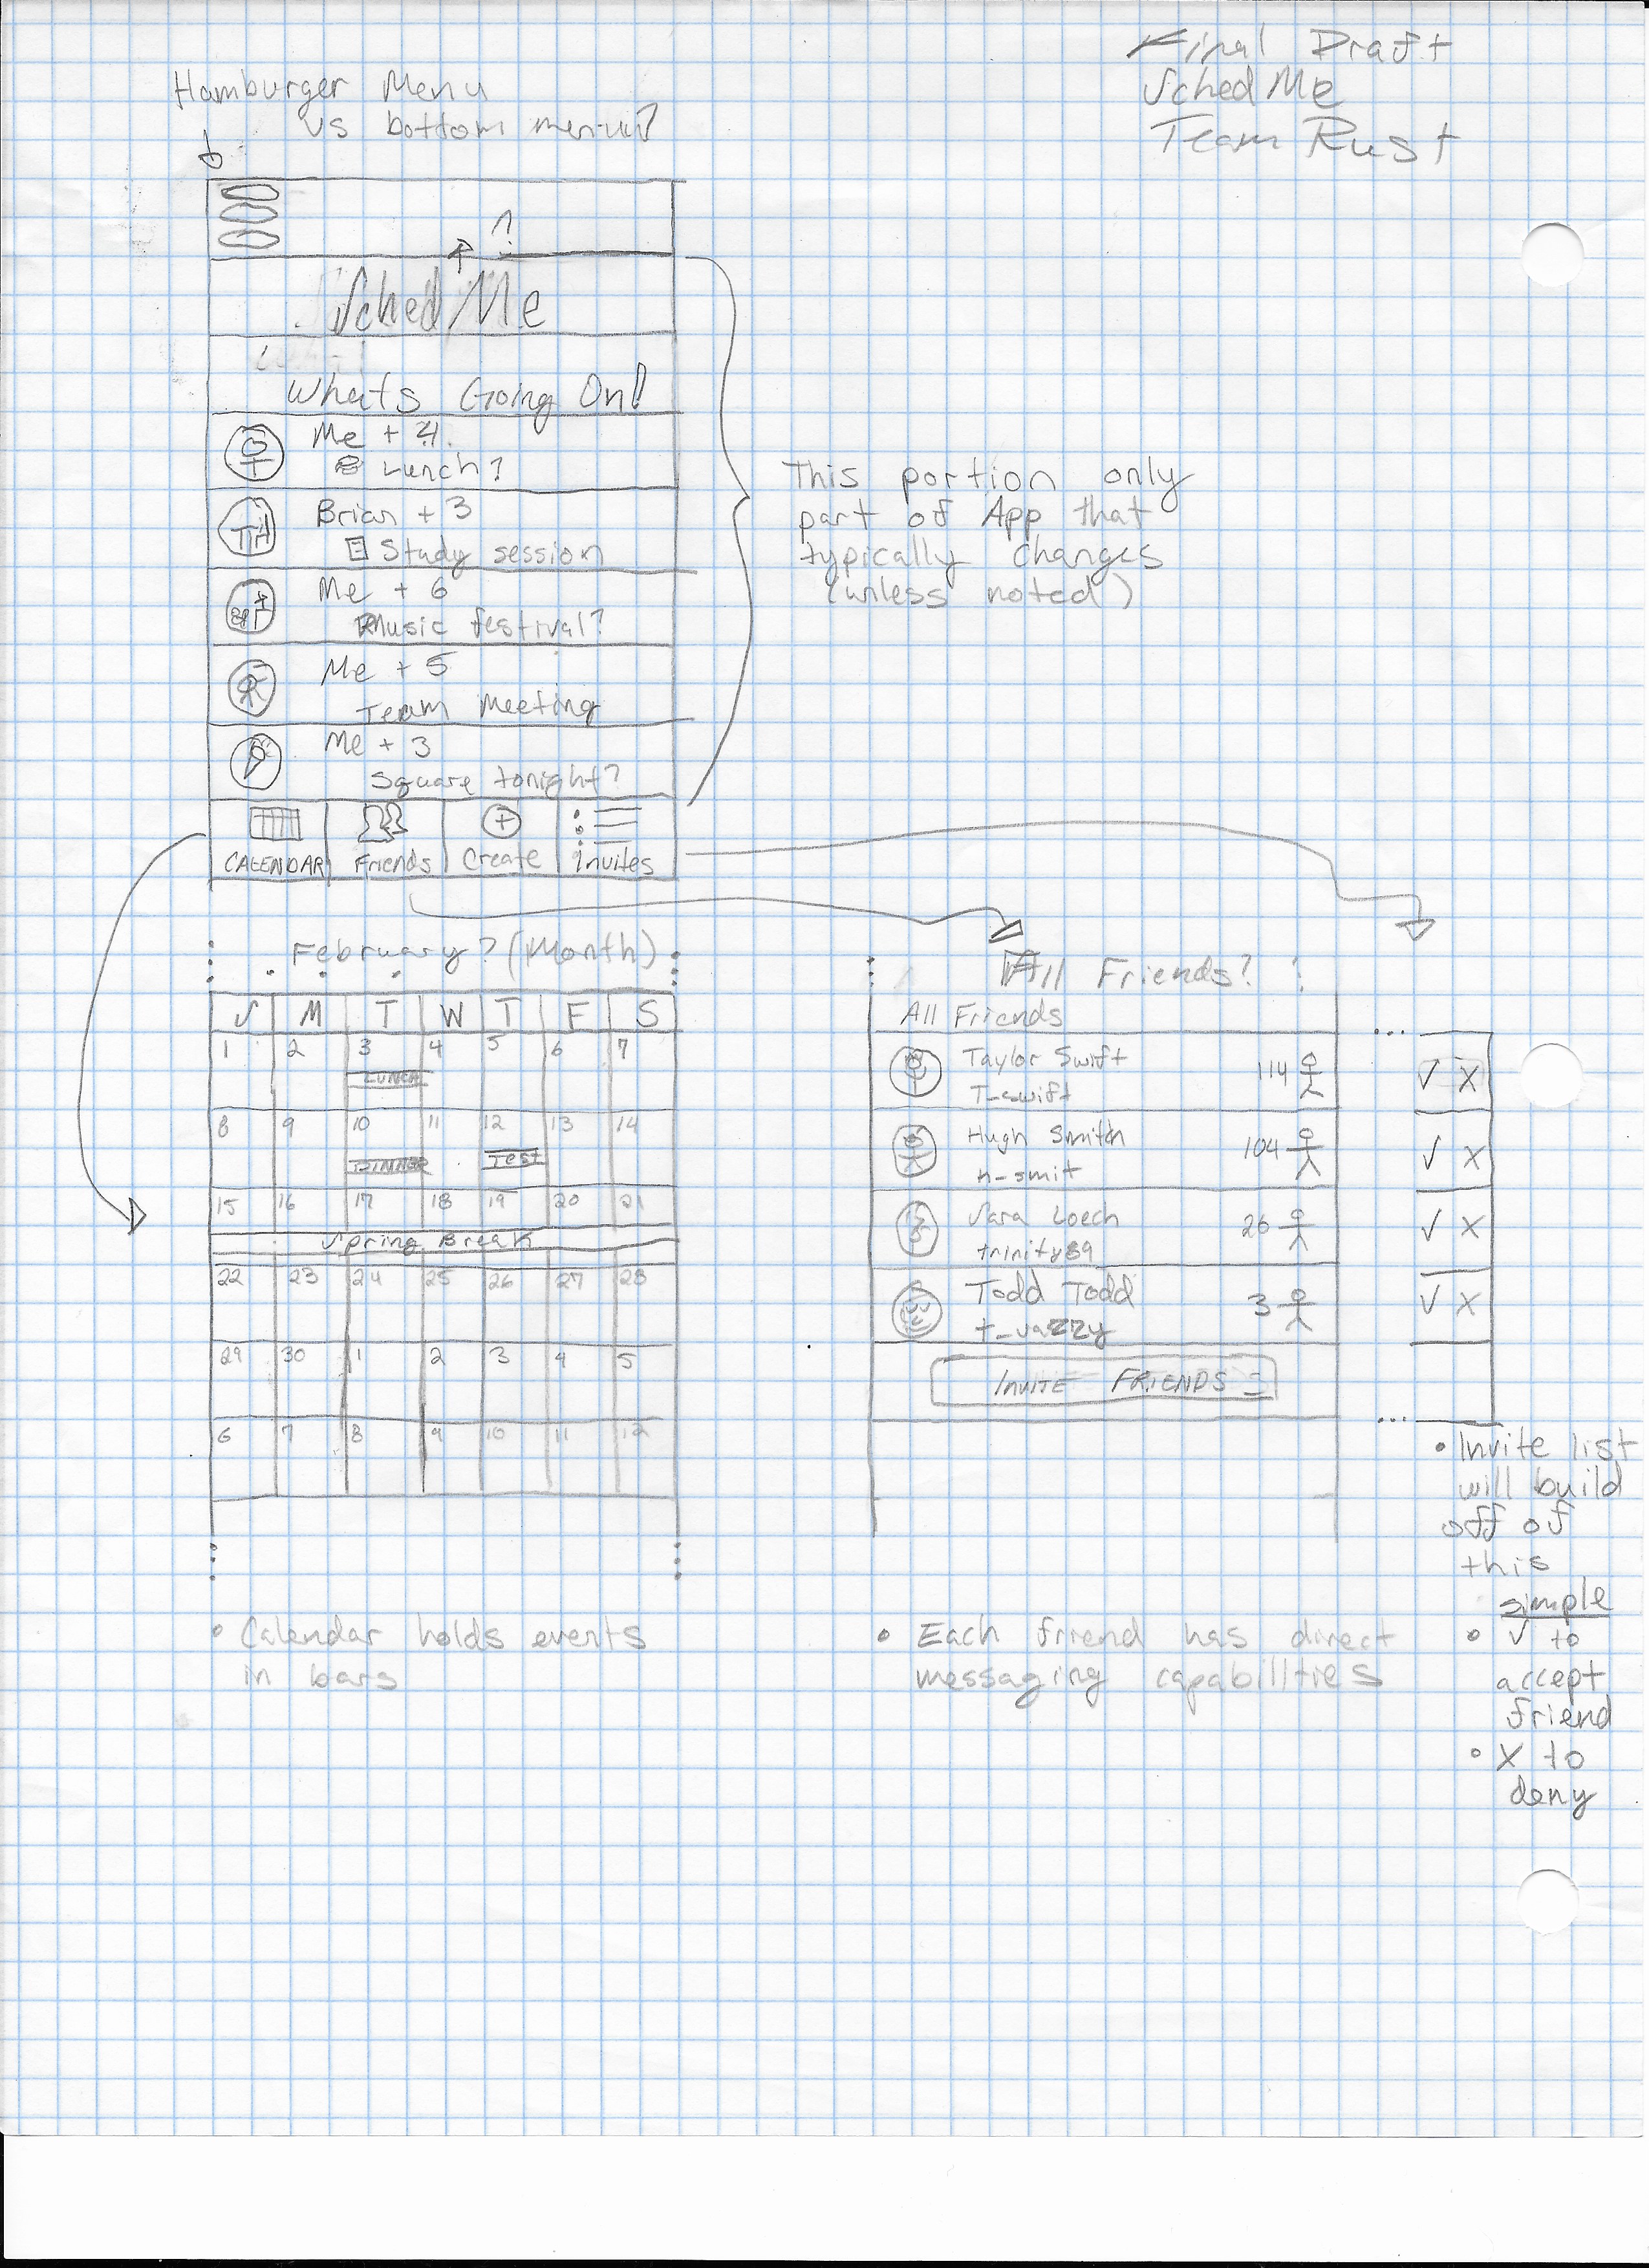 Final Draft
Sched Me
Team Rust
Hamburger Menu
vs bottom menu?
?
Sched Me
Whats Going On!
Me + 4
Lunch?
Brian + 3
Study session
Me + 6
Music festival?
Me + 5
Team Meeting
Me + 3
Square tonight?
CALENDAR Friends Create invites
This portion only
part of App that
typically changes
(unless noted)
February? (Month)
S M T W T F S
1 2 3 4 5 6 7
LUNCH
8 9 10 11 12 13 14
DINNER Test
15 16 17 18 19 20 21
Spring Break
22 23 24 25 26 27 28
29 30 1 2 3 4 5
6 7 8 9 10 11 12
• Calendar holds events
in bars
All Friends?
All Friends
Taylor Swift
T_swift
114
Hugh Smith
h-smit
104
Sara Loech
trinity89
26
Todd Todd
3
INVITE FRIENDS
• Each friend has direct
messaging capabilities
...
✓ X
✓ X
✓ X
✓ X
...
• Invite list
will build
off of
this
simple
• ✓ to
accept
friend
• X to
deny